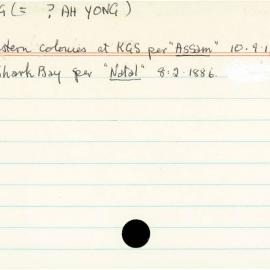 G (= ? AH YONG )
stern colonies at KGS per "Assam" 10.9.1
Shark Bay per "Natal" 8.2.1886.